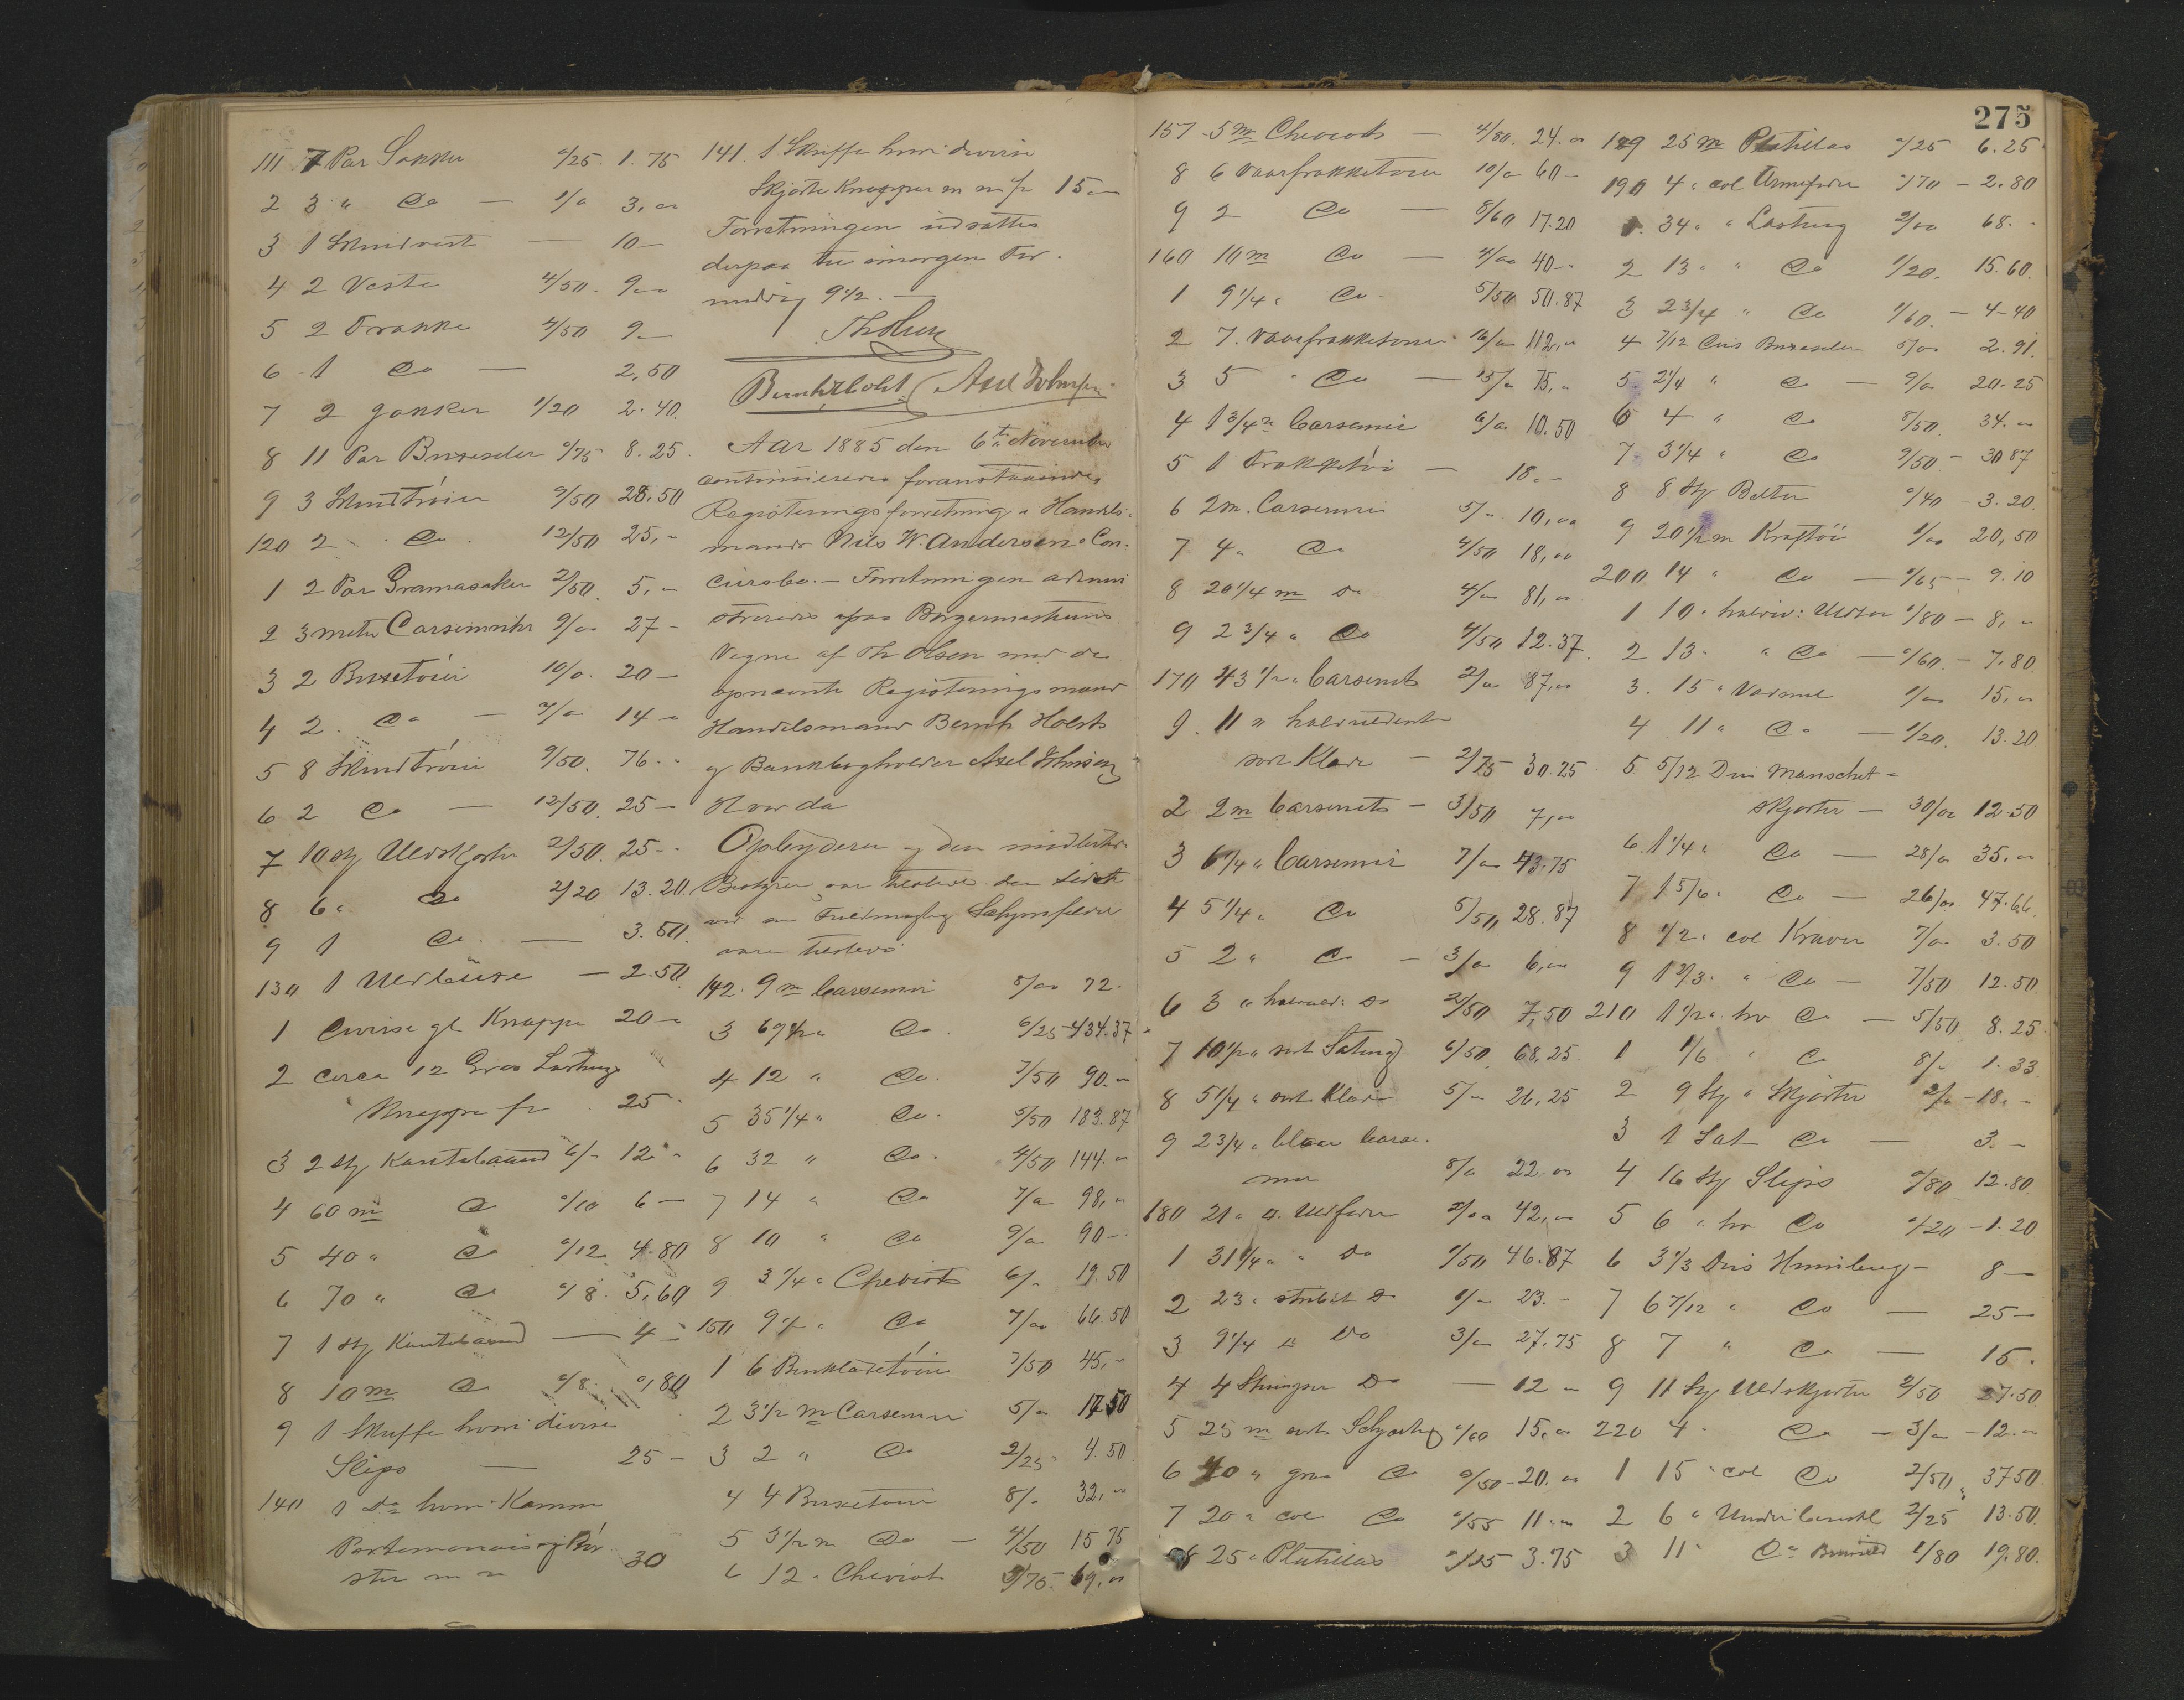 111 7 Par Sokker %25. 1. 75
2 3 " Do — 1/" 3,00
3 1 Skindvest — 10 —
4 2 Veste 4/50. 9 —
5 2 Frakke 4/50 9 —
6 1 Do — 2,50
7 2 Jakker 1/20 2.40.
8 11 Par Buxeseler %75 8.25.
9 3 Skindtröier 9/50 28.50
120 2 Do 12/50 25,"
1 2 Par Gramascher 2/50. 5,"
2 3 meter 9/00 27 —
3 2 Buxetöier 10/0. 20 —
4 2. Do — 7/" 14 —
5 8 Skindtröier 9/50. 76."
6 2 Do — 12/50. 25 —
7 10 Stk Uldskjorter 2/50. 25 —
8 6 " Do 2/20 13.20.
9 1 Do. — 3.50.
130 1 Uldbluse — 2.50.
1 Diverse gl Knapper 20 —
2 circa 12 Gros Lastings
Knapper for 25 "
3 2 Stk Kantebaand 6/" 12 "
4 60 m Do %10 6 —
5 40 " Do %12 4.80
6 70 " Do %8. 5,60
7 1 Stk Kantebaand — 4 —
8 10 m Do %8. 0,80
9 1 Skuffe hvori diverse
Slips — 25 —
140 1 Do hvori Kamme
Portemonais og Bör
ster m m 30
141. 1 Skuffe hvori diverse
Skjorte Knapper m m for 15 —
Forretningen udsattes
derpaa til imorgen For-
middag 9 1/2. —
Th Olsen
Bernh. Holst. Axel Johnsen
Aar 1885 den 6te November
continueredes foranstaaende
Registeringsforretning i Handels-
mand Nils W. Andersens Con-
cursbo. — Forretningen admini
streredes paa Borgermesterens
Vegne af Th Olsen med de
opnævnte Registeringsmænd
Handelsmand Bernh Holst
og Bankbogholder Axel Johnsen
Hvor da
Opbyderen og den midlertid.
Bestyrer var tilstede den sidste
ved sin Fuldmægtig
var tilstede
142. 9 m Carsemir 8/00 72.
3 69 1/2 " Do. 6/25 434.37
4 12 " Do. 7/50 90."
5 35 1/4 " Do. 5/50 183.87
6 32 " Do. 4/50 144."
7 14 " Do 7/" 98,"
8 10 " Do 9/" 90 —
9 3 1/4 " Cheviots 6/" 19.50
150 9 1/2 " Do 7/00 66.50
1 6 Benklædetöier 7/50 45,"
2 3 1/2 m Carsemir 5/" 17.50
3 2 " Do 2/25 4.50
4 4 Buxetöier 8/" 32,"
5 3 1/2 m Do — 4/50 15 75
6 12 " Cheviots 5/75. 69,00
275
157 5 m Cheviots — 4/80. 24.00
8 6 Vaarfrakketöier 10/" 60 —
9 2 Do — 8/60 17.20
160 10 m Do — 4/00 40 —
1 9 1/4 " Do. 5/50 50.87
2 7. Vaarfrakketöier 16/" 112,"
3 5 " Do — 15/" 75,"
4 1 3/4 m Carsemir 6/" 10.50
5 1 Frakketöi — 18. —
6 2 m. Carsemir 5/" 10,00
7 4 " Do 4/50 18,00
8 20 1/4 m Do 4/" 81,00
9 2 3/4 " Do 4/50 12.37.
170 43 1/2 " Carsemir 2/" 87,00
9. 11 " halvuldent
sort Klæde — 2/75 30.25
2 2 m Carsemir — 3/50 7,00
3 6 1/4 " Carsemir 7/00 43,75
4 5 1/4 " Do 5/50 28.87
5 2 " Do — 3/" 6,00
6 3 " halvuld: Do 2/50 7,50
7 10 1/2 " sort Satung 6/50. 68.25.
8 5 1/4 " sort Klæde 5/" 26,25
9 2 3/4 " blaa Carse-
mir 8/" 22.00
180 21 " s. Uldfoder 2/00 42,00
1 31 1/4 " " Do 1/50 46.87
2 23 " stribet Do 1/" 23. —
3 9 1/4 " Do 3/" 27.75
4 4 Do — 12 —
5 25 m sort %60 15,00
6 40 " graa Do %50 20.00
7 20 " col Do %55 11.00
8 25 " Platillas %15 3.75
189 25 m Platillas %25 6.25
190 4 " col Ermefoder %70 — 2.80
1. 34 " " Lasting 2/00 68. "
2 13 " " Do 1/20. 15.60.
3 2 3/4 " Do 1/60. — 4-40
4 7/12 Dus Buxeseler 5/00 2.91.
5. 2 1/4 " Do — 9/" 20.25
6 4 " Do 8/50. 34.00
7. 3 1/4 " Do 9/50 — 30 87
8 8 Stk Belter %40 — 3.20.
9 20 1/2 m Kraftöi 1/00 20,50
200 14 " Do — %65 — 9.10
1 10 " halvv: %80 — 8,"
2 13 " " Do — %60. — 7.80
3. 15 " Vadmel 1/" 15,"
4 11 " Do — 1/20. 13.20
5 5/12 Dus Manschet-
skjorter — 30/00 12.50
6. 1 1/4 " Do — 28/" 35,"
7 1 5/6 " Do — 26/00 47.66.
8 1/2 " col Kraver 7/" 3.50
9 1 2/3 " " Do — 7/50 12.50
210 1 1/2 " hv Do — 5/50. 8.25
1 1/6 " Do 8/" 1.33
2 9 Stk " Skjorter 2/" — 18. "
3 1 Sat Do — 3. —
4 16 Stk Slips %80 12.80
5 6 " hv Do %20 — 1.20
6 3 1/3 Dus — 8 —
7 6 7/12 " Do — 25 —
8 7 " Do — 15.
9 11 Stk Uldskjorter 2/50 27.50.
220 4 " Do — 3/" — 12."
1 15 " col Do 2/50. 37.50
2 6 " Underbenkl 2/25 13.50.
3 11 " Do 1/80 19.80.